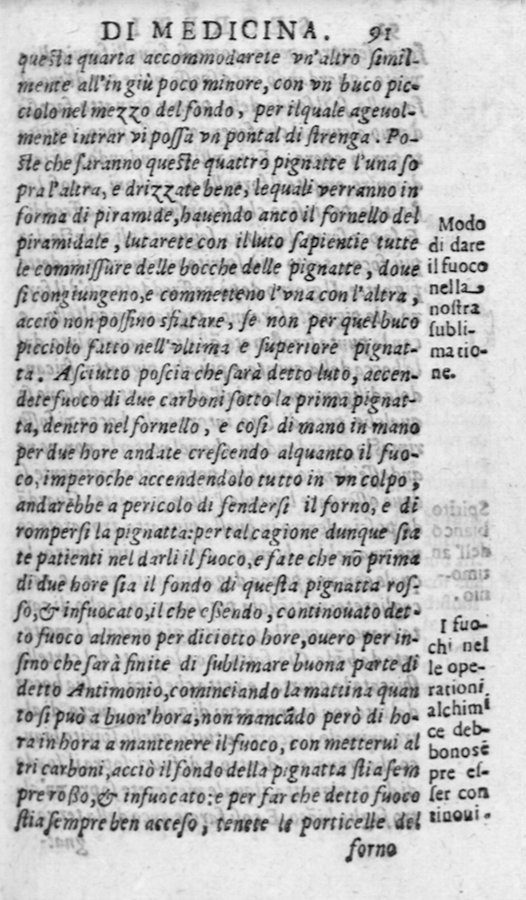 DI MEDICINA. 91
queſta quarta accommodarete vn'altro ſimil-
mente all'in giù poco minore, con vn buco pic-
ciolo nel mezzo del fondo, per ilquale ageuol-
mente intrar vi poſſa vn pontal di ſtrenga. Po-
ſte che ſaranno queſte quattro pignatte l'una ſo
pra l'altra, e drizzate bene, lequali verranno in
forma di piramide, hauendo anco il fornello del
piramidale, lutarete con il luto ſapientie tutte
le commiſſure delle bocche delle pignatte, doue
ſi congiungeno, e commetteno l'vna con l'altra,
acciò non poſſino sfiatare, ſe non per quel buco
picciolo fatto nell'vltima e ſuperiore pignat-
ta. Aſciutto poſcia che ſarà detto luto, accen-
dete fuoco di due carboni ſotto la prima pignat-
ta, dentro nel fornello, e coſi di mano in mano
per due hore andate creſcendo alquanto il fuo-
co, imperoche accendendolo tutto in vn colpo,
andarèbbe a pericolo di fenderſi il forno, e di
romperſi la pignatta: per tal cagione dunque ſia
te patienti nel darli il fuoco, e fate che nō prima
di due hore ſia il fondo di queſta pignatta roſ-
ſo, & infuocato, il che eßendo, continouato det-
to fuoco almeno per diciotto hore, ouero per in-
ſino che ſarà finite di ſublimare buona parte di
detto Antimonio, cominciando la mattina quan
to ſi può a buon'hora, non mancādo però di ho-
ra in hora a mantenere il fuoco, con metterui al
tri carboni, acciò il fondo della pignatta ſtia ſem
pre roßo, & infuocato: e per far che detto fuoco
ſtia ſempre ben acceſo, tenete le porticelle del
forno
Modo
di dare
il fuoco
nella
noſtra
ſubli-
matio-
ne.
I fuo-
chi nel
le ope-
rationi
alchimi
ce deb-
bono sē
pre eſ-
ſer con
tinoui.